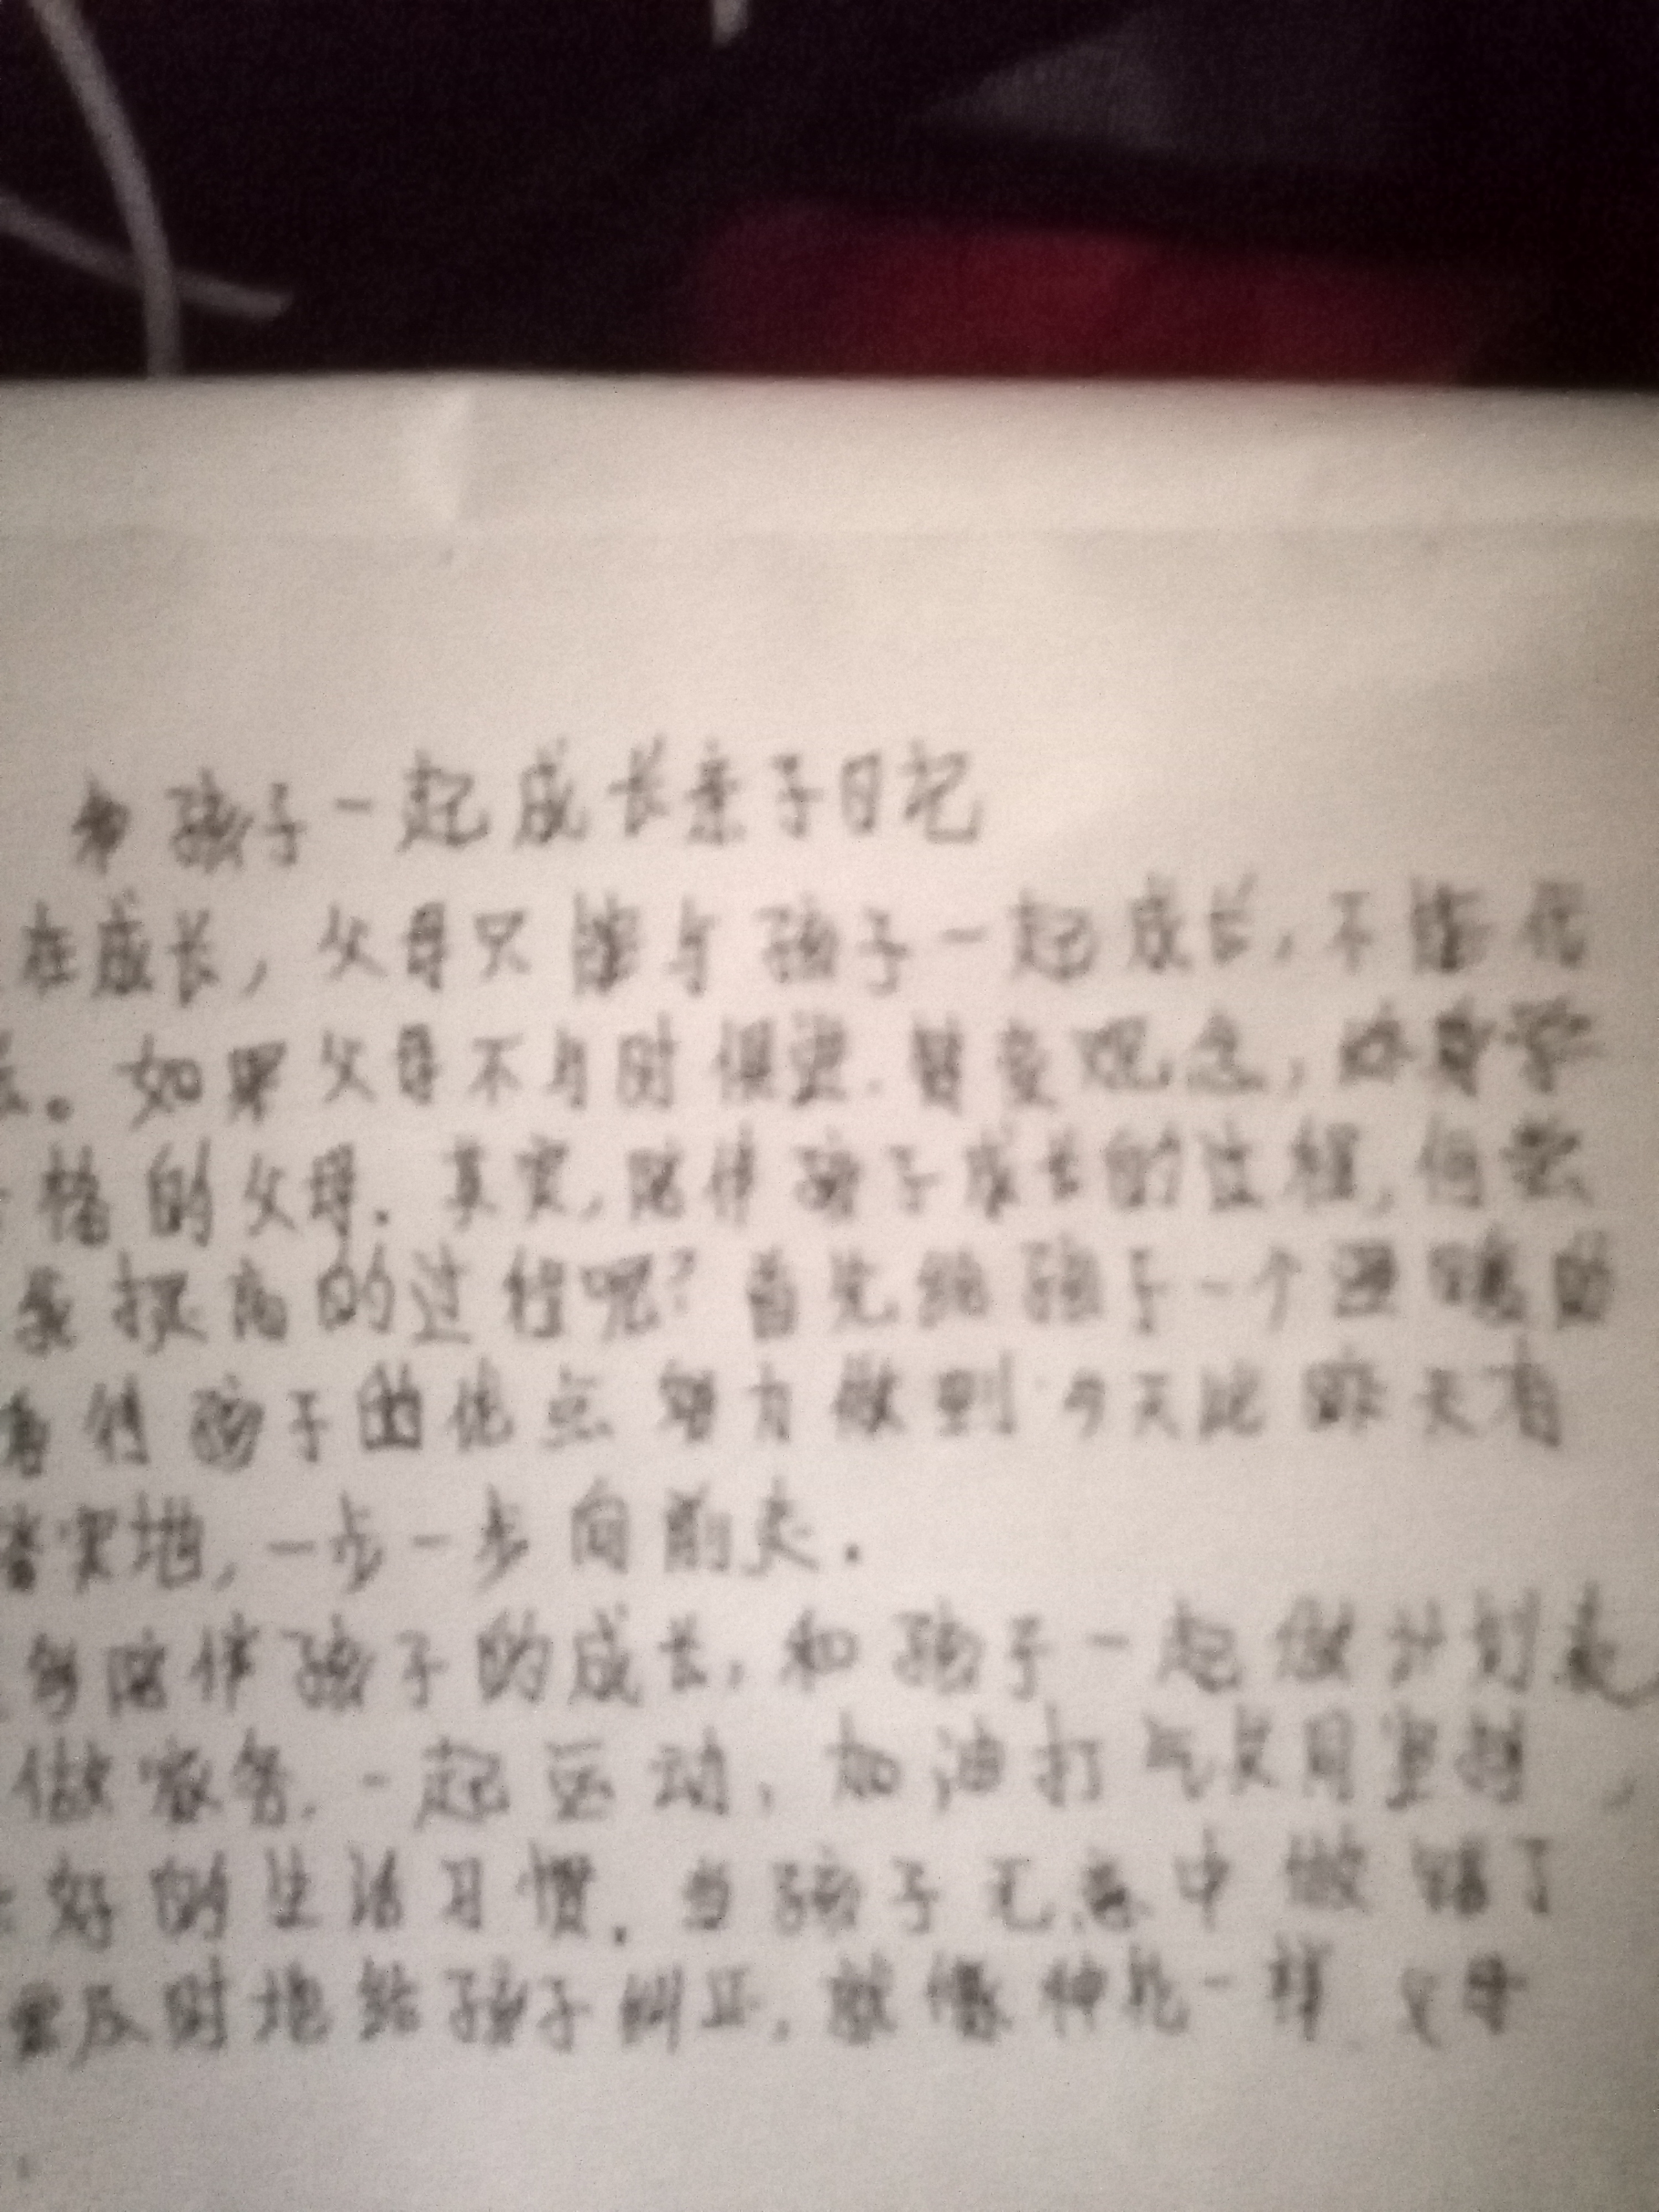 和孩子一起成长亲子日记
在成长，父母只能与孩子一起成长，不能代
。如果父母不与时俱进．转变观念，终身学
格的父母．其实，陪伴孩子成长的过程，何尝
我提高的过程呢？首先给孩子一个温暖的
待孩子的优点 努力做到今天比昨天有
实地，一步一步向前走．
陪伴孩子的成长，和孩子一起做计划表
做家务．一起运动，加油打气共同坚持，
好的生活习惯．当孩子无意中做错了
及时地给孩子纠正．就像种花一样 父母